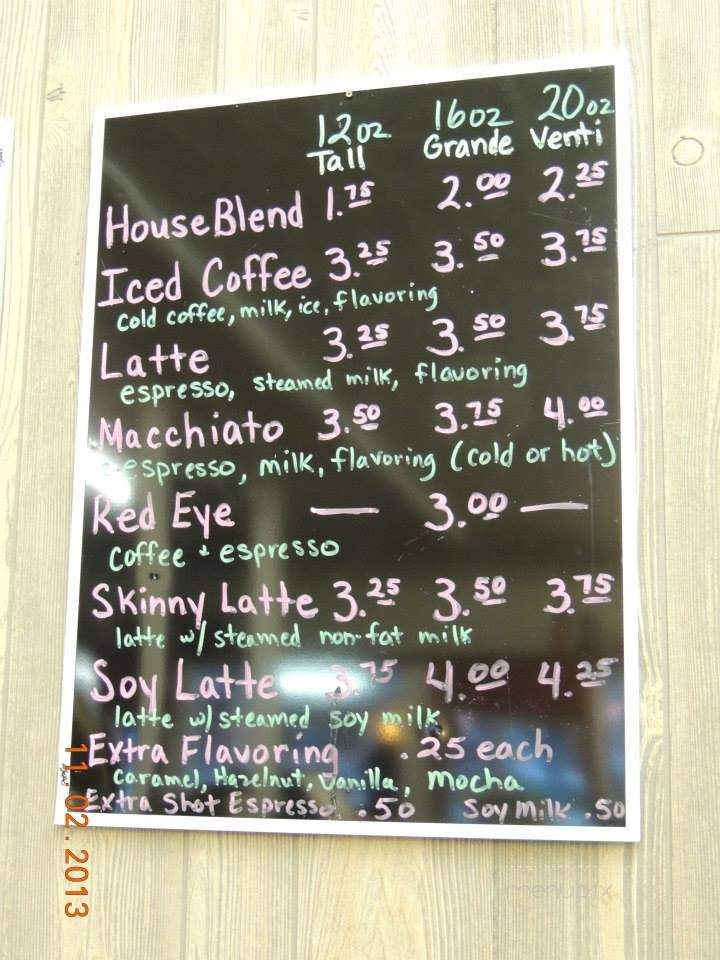 12oz 16oz 20oz
Tall Grande Venti
House Blend 1.75 2.00 2.25
Iced Coffee 3.25 3.50 3.75
cold coffee, milk, ice, flavoring
Latte 3.25 3.50 3.75
espresso, steamed milk, flavoring
Macchiato 3.50 3.75 4.00
espresso, milk, flavoring (cold or hot)
Red Eye — 3.00 —
Coffee + espresso
Skinny Latte 3.25 3.50 3.75
latte w/ steamed non-fat milk
Soy Latte 3.75 4.00 4.25
latte w/ steamed soy milk
Extra Flavoring .25 each
Caramel, Hazelnut, Vanilla, Mocha
Extra Shot Espresso .50 Soy Milk .50
11.02.2013